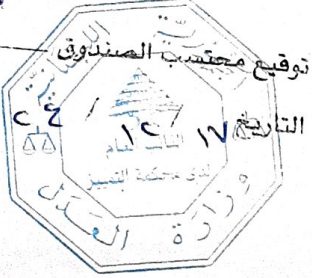 توقيع محتسب الصندوق
التاريخ ١٧ / ١٢ /
النائب العام
لدى محكمة التمييز
وزارة العدل